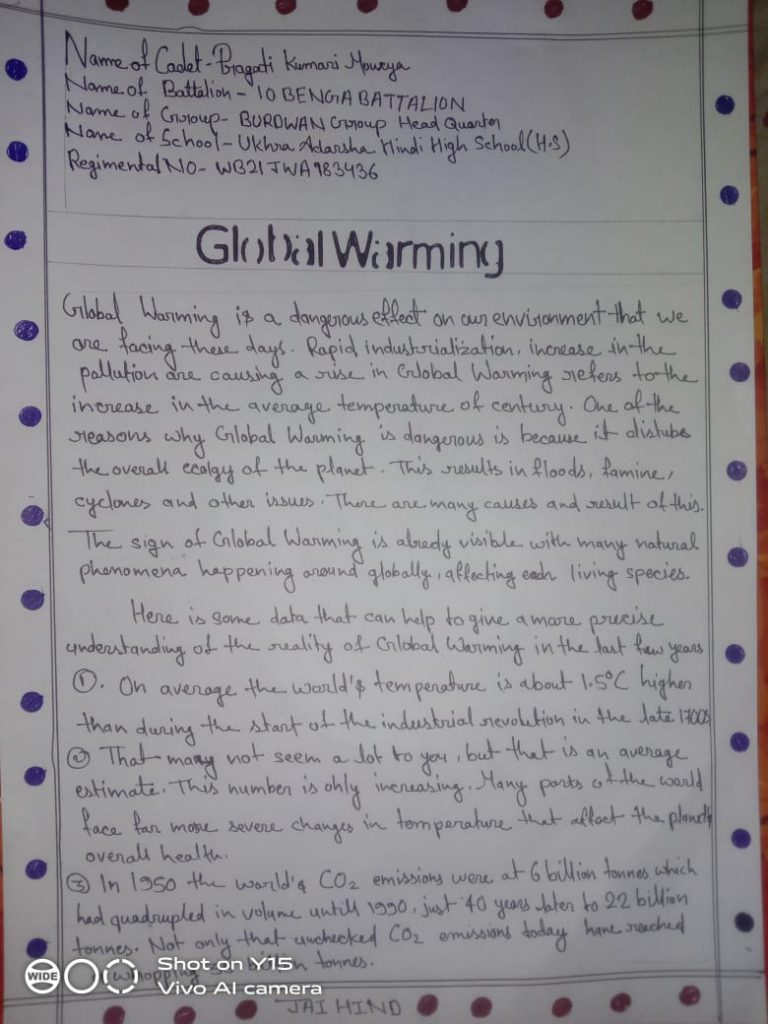 Name of Cadet - Pragati Kumari Mourya
Name of Battalion - 10 BENGA BATTALION
Name of Group - BURDWAN Group Head Quarter
Name of School - Ukhra Adarsha Hindi High School (H.S)
Regimental NO - WB21JWA983436
Global Warming
Global Warming is a dangerous effect on our environment that we
are facing these days. Rapid industrialization, increase in the
pollution are causing a rise in Global Warming refers to the
increase in the average temperature of century. One of the
reasons why Global Warming is dangerous is because it distubes
the overall ecolgy of the planet. This results in floods, famine,
cyclones and other issues. There are many causes and result of this.
The sign of Global Warming is alredy visible with many natural
phenomena happening around globally, affecting each living species.
Here is some data that can help to give a more precise
understanding of the reality of Global Warming in the last few years
①. On average the world's temperature is about 1.5°C higher
than during the start of the industrial revolution in the late 1700s
② That many not seem a lot to you, but that is an average
estimate. This number is only increasing. Many parts of the world
face far more severe changes in temperature that affect the planet's
overall health.
③ In 1950 the world's CO2 emissions were at 6 billion tonnes which
had quadrupled in volume untill 1990, just 40 years later to 22 billion
tonnes. Not only that unchecked CO2 emissions today have reached
whopping billion tonnes.
JAI HIND
WIDE
Shot on Y15
Vivo AI camera